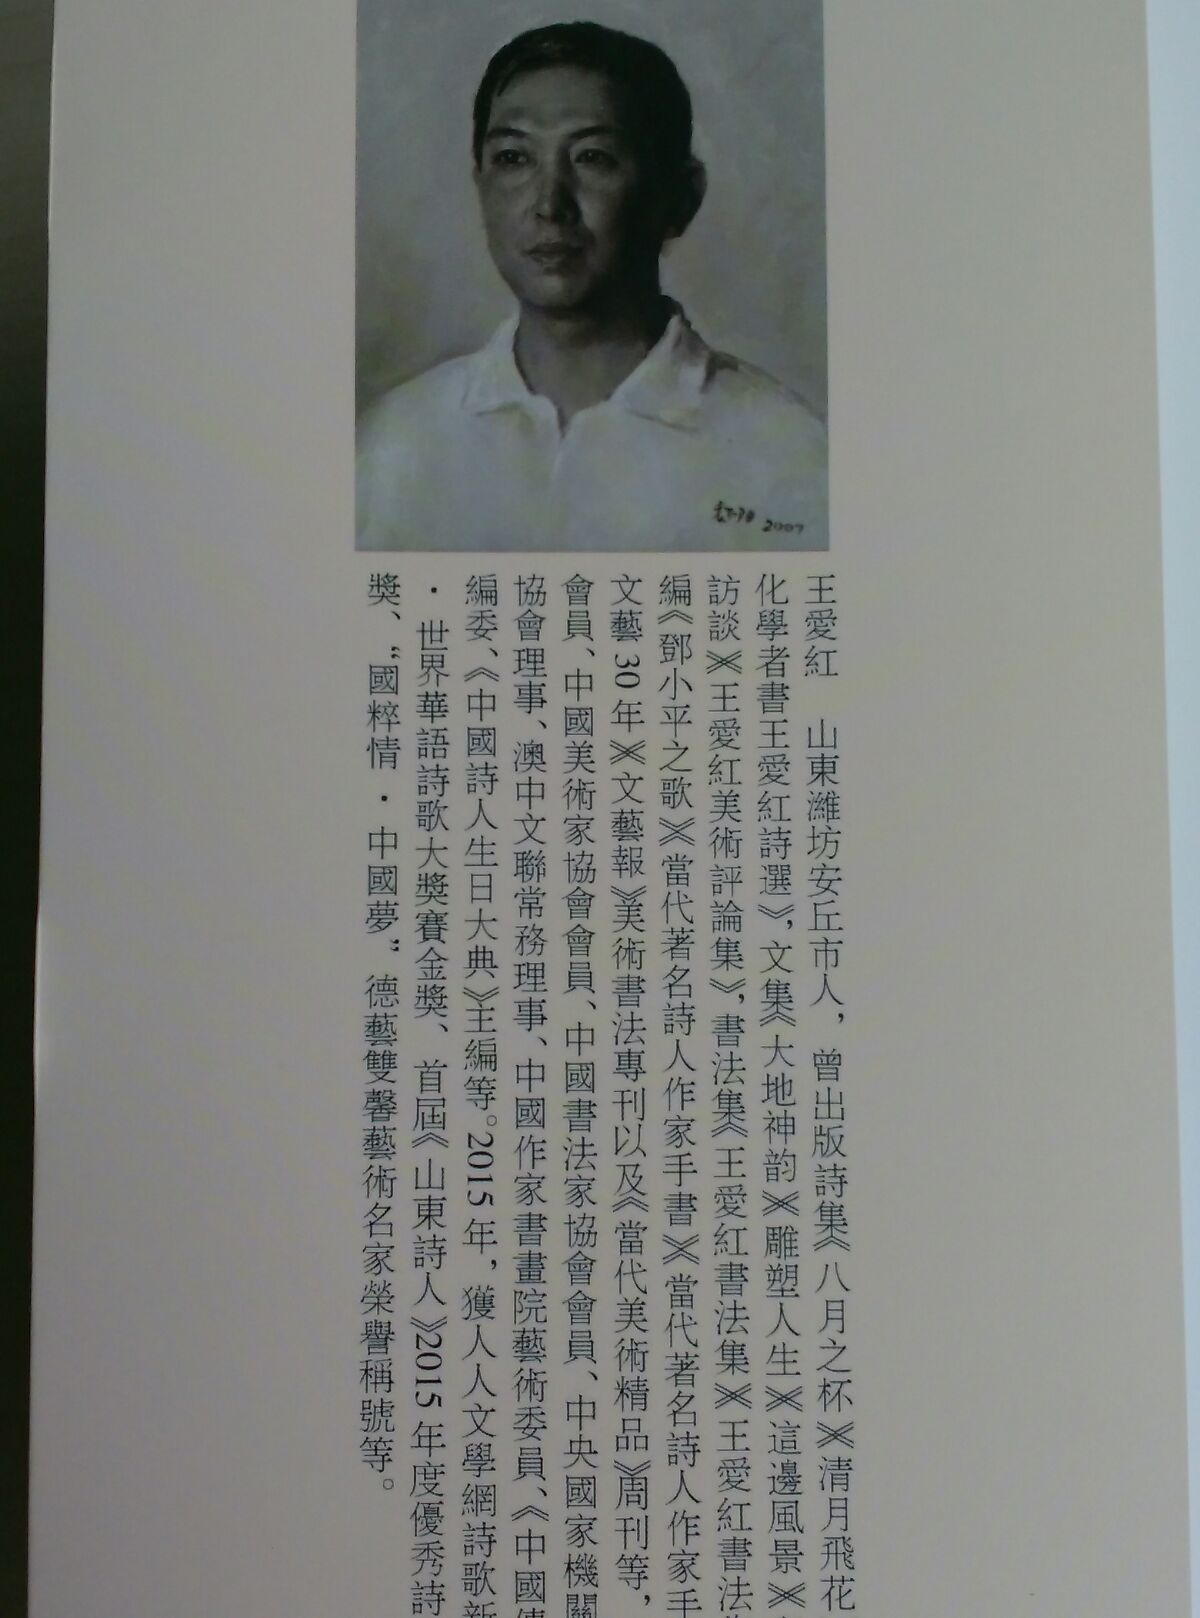 2007
王愛紅　山東濰坊安丘市人，曾出版詩集《八月之杯》《清月飛花
化學者書王愛紅詩選》，文集《大地神韵》《雕塑人生》《這邊風景》《
訪談》《王愛紅美術評論集》，書法集《王愛紅書法集》《王愛紅書法
編《鄧小平之歌》《當代著名詩人作家手書》《當代著名詩人作家手
文藝30年》《文藝報》美術書法專刊以及《當代美術精品》周刊等，
會員、中國美術家協會會員、中國書法家協會會員、中央國家機關
協會理事、澳中文聯常務理事、中國作家書畫院藝術委員、《中國
編委、《中國詩人生日大典》主編等。2015年，獲人人文學網詩歌新
·世界華語詩歌大獎賽金獎、首屆《山東詩人》2015年度優秀詩
獎、“國粹情·中國夢”德藝雙馨藝術名家榮譽稱號等。